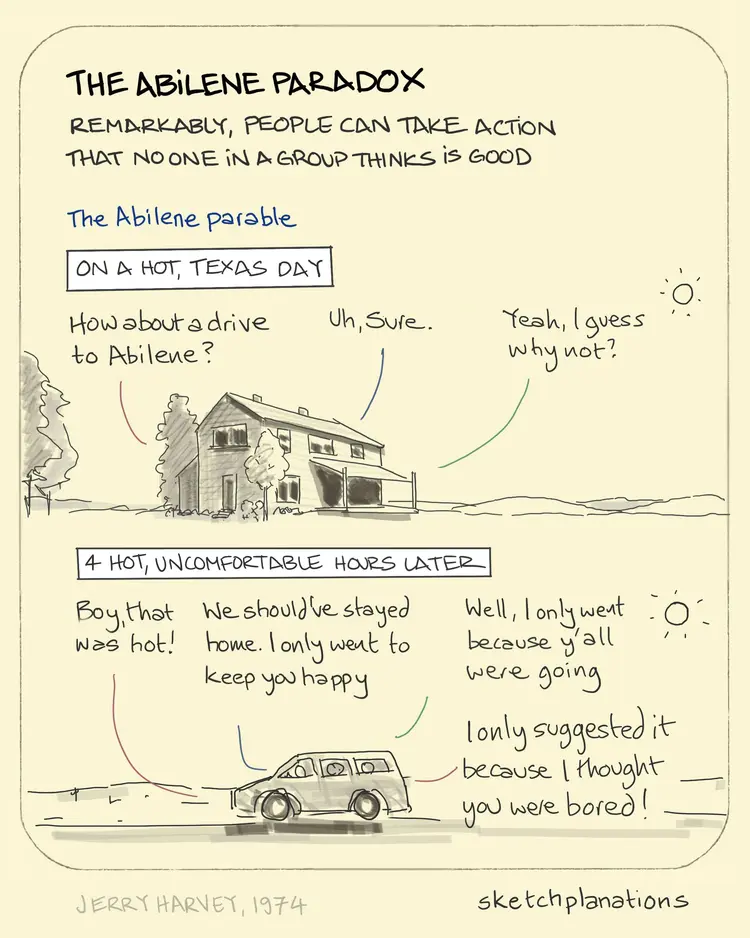 THE ABiLENE PARADOX
REMARKABLY, PEOPLE CAN TAKE ACTION
THAT NO ONE IN A GROUP THINKS iS GOOD
The Abilene parable
ON A HOT, TEXAS DAY
How about a drive
to Abilene?
Uh, Sure.
Yeah, I guess
why not?
4 HOT, UNCOMFORTABLE HOURS LATER
Boy, that
was hot!
We should've stayed
home. I only went to
keep you happy
Well, I only went
because y'all
were going
I only suggested it
because I thought
you were bored!
JERRY HARVEY, 1974
sketchplanations